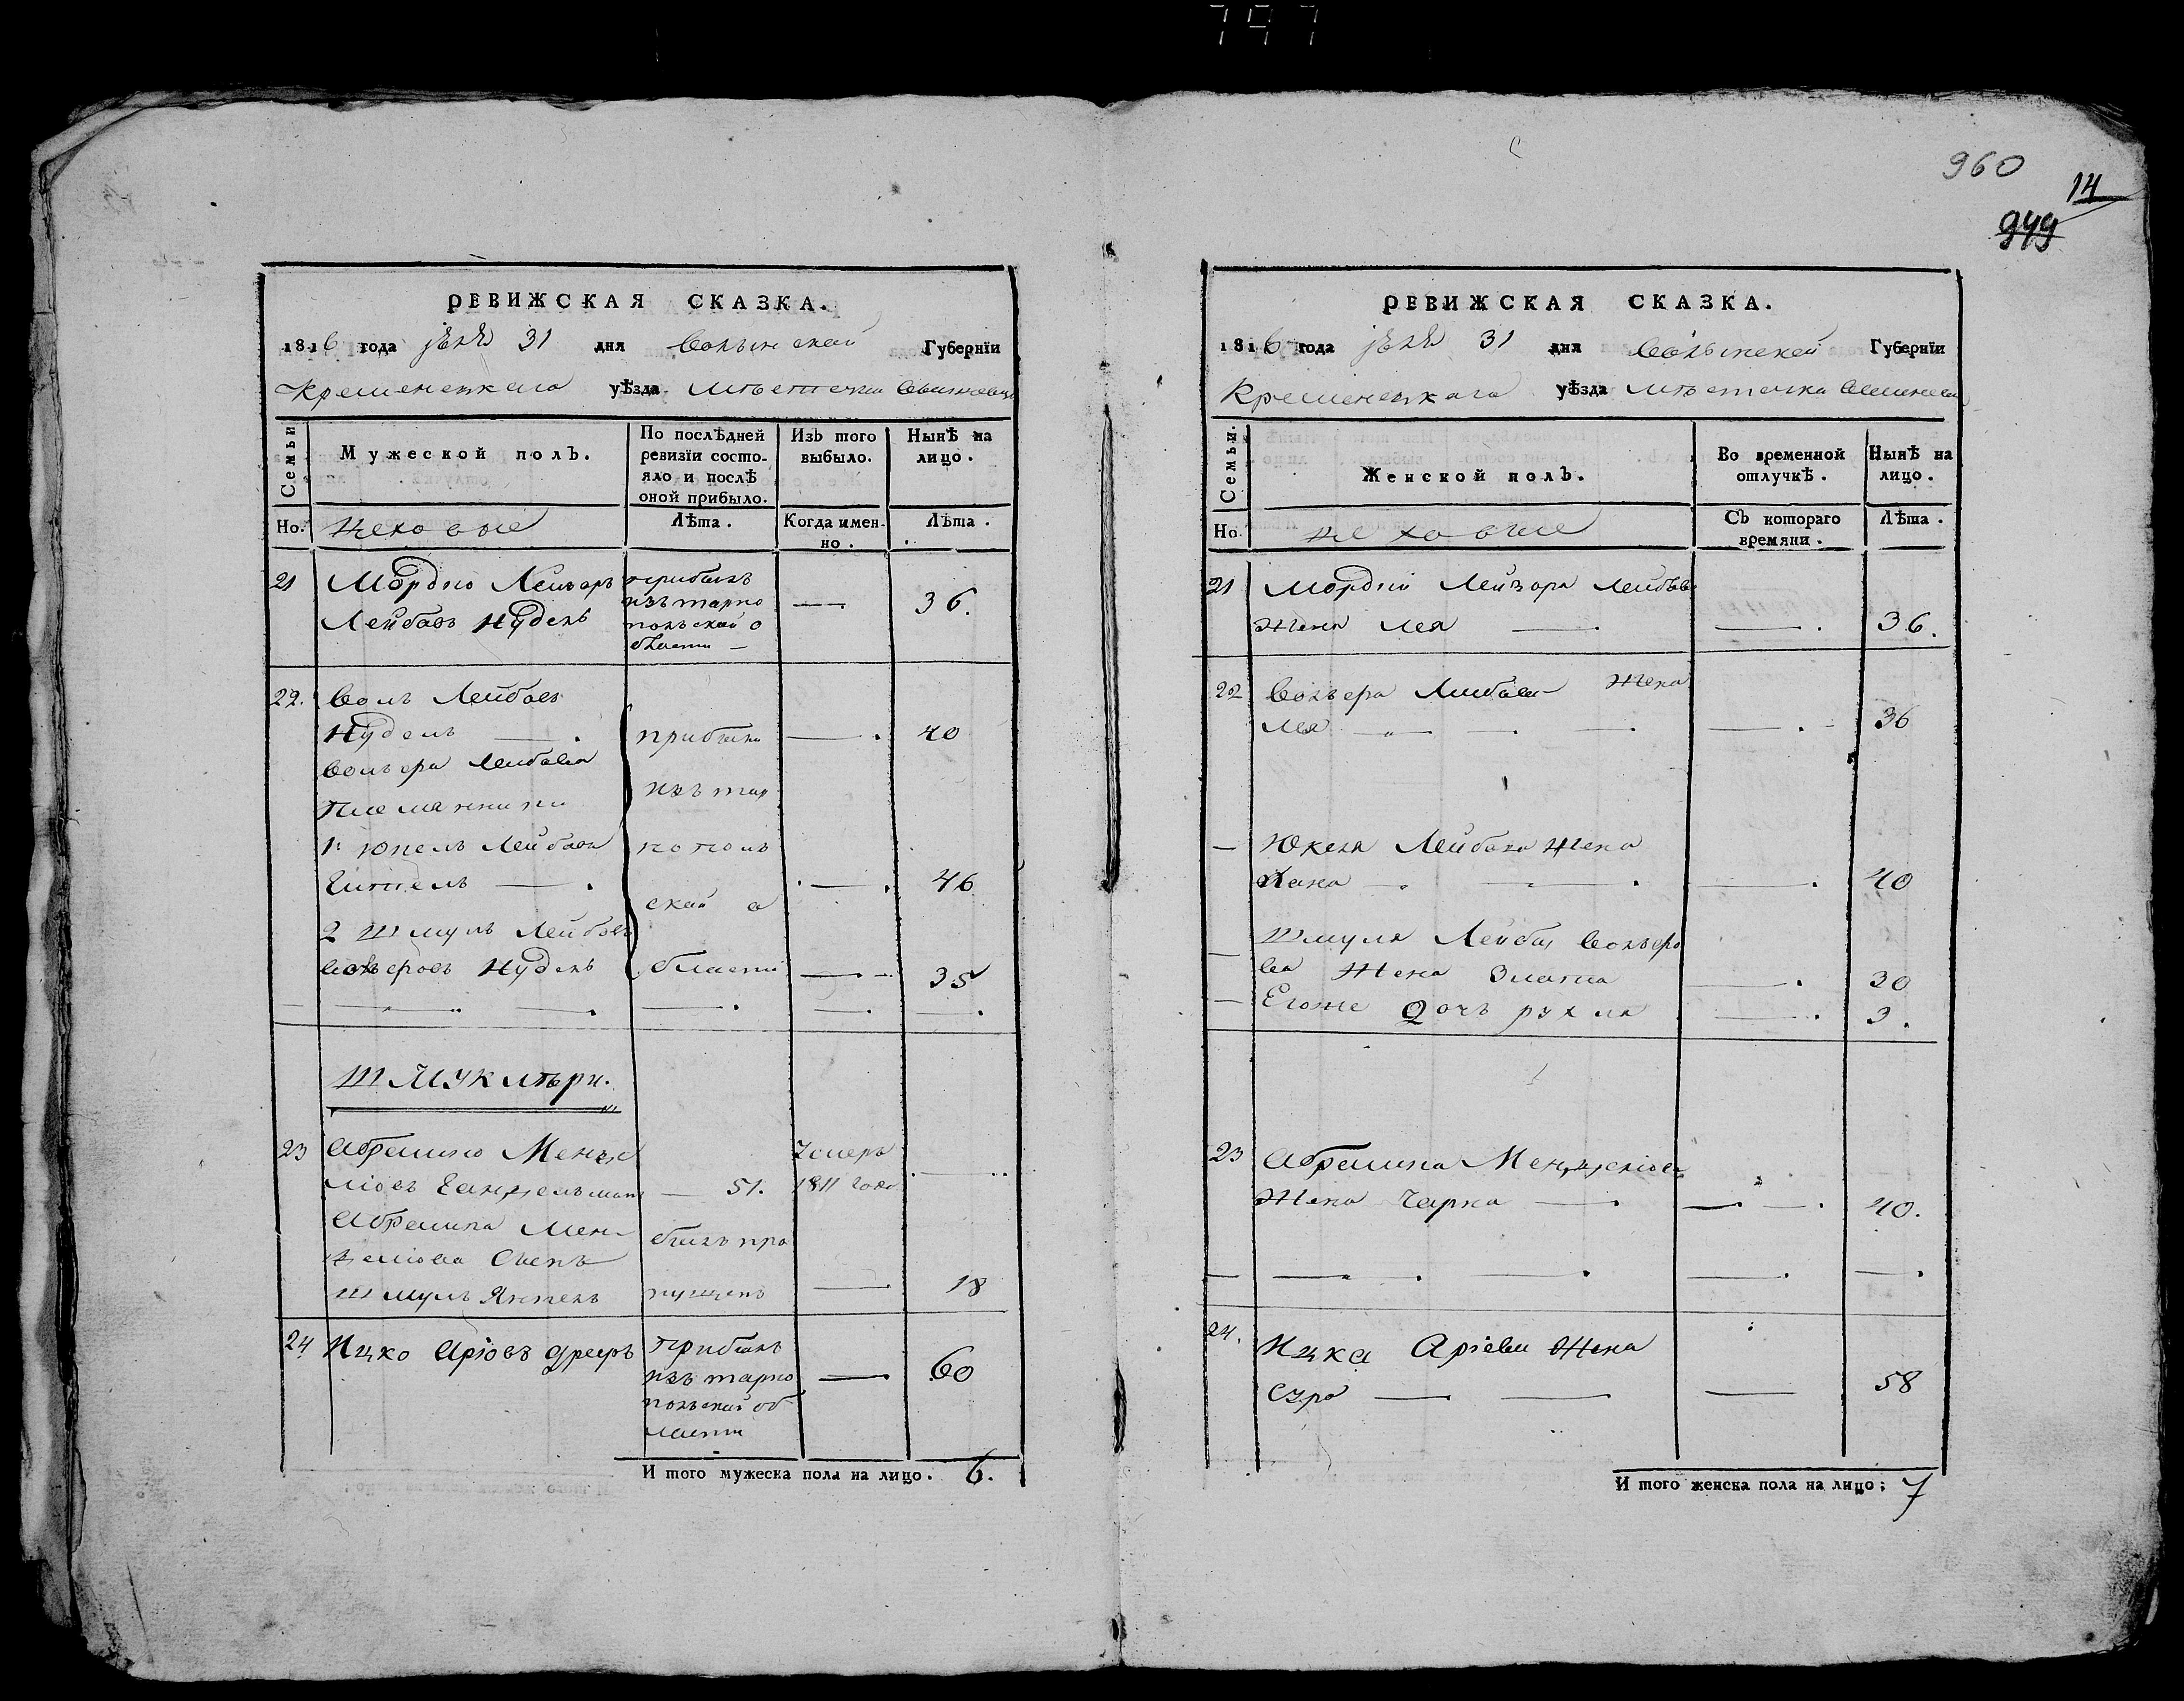 960
14
949
РЕВИЖСКАЯ СКАЗКА.
1816 года 31 дня Волынской Губернїи
Кременецкаго уѣзда мѣстечка
Семьи
Мужеской полъ.
По послѣдней ревизїи состояло и послѣ оной прибыло.
Изъ того выбыло.
Нынѣ на лицо.
Но.
Цеховые
Лѣта.
Когда именно.
Лѣта.
21 Мордко Лейзоръ прибылъ
Лейбовъ Нудель изъ тарно — 36.
польской о
бласти —
22. Волъ Лейбовъ
Нудель — . прибыли — . 40
Вольера Лейбова
племянники изъ тар
1й Юкель Лейбовъ нополь
— . — . 46
ской о
2 Шмуль Лейбовъ
Вольеровъ Нудель бласти — 35
Шмуклѣри.
23 Абрамко Менде Умеръ
ліовъ — 51. 1811 года
Абрамка Мен
деліова Сынъ былъ про
Шмуль Янкель пущенъ — 18
24 Ицко Аріовъ прибылъ
изъ тарно — 60
польской об
ласти
И того мужеска пола на лицо. 6.
РЕВИЖСКАЯ СКАЗКА.
1816 года 31 дня Волынской Губернїи
Кременецкаго уѣзда мѣстечка
Семьи.
Женской полъ.
Во временной отлучкѣ.
Нынѣ на лицо.
Но.
Цеховые
Съ котораго времяни.
Лѣта.
21 Мордки Лейзора Лейбова
Жена Лея — . — . 36.
22 Вольера Лейбова Жена
Лея — . — . 36
— Юкеля Лейбова Жена
Хана — . — . 40
Шмуля Лейбы Вольеро
— ва Жена Злата — . 30
— Егоже Дочь рухля — . 3.
23 Абрамка Менделіова
Жена Чарна — . — . 40.
24. Ицка Аріева Жена
Сура — — — 58
И того женска пола на лицо; 7